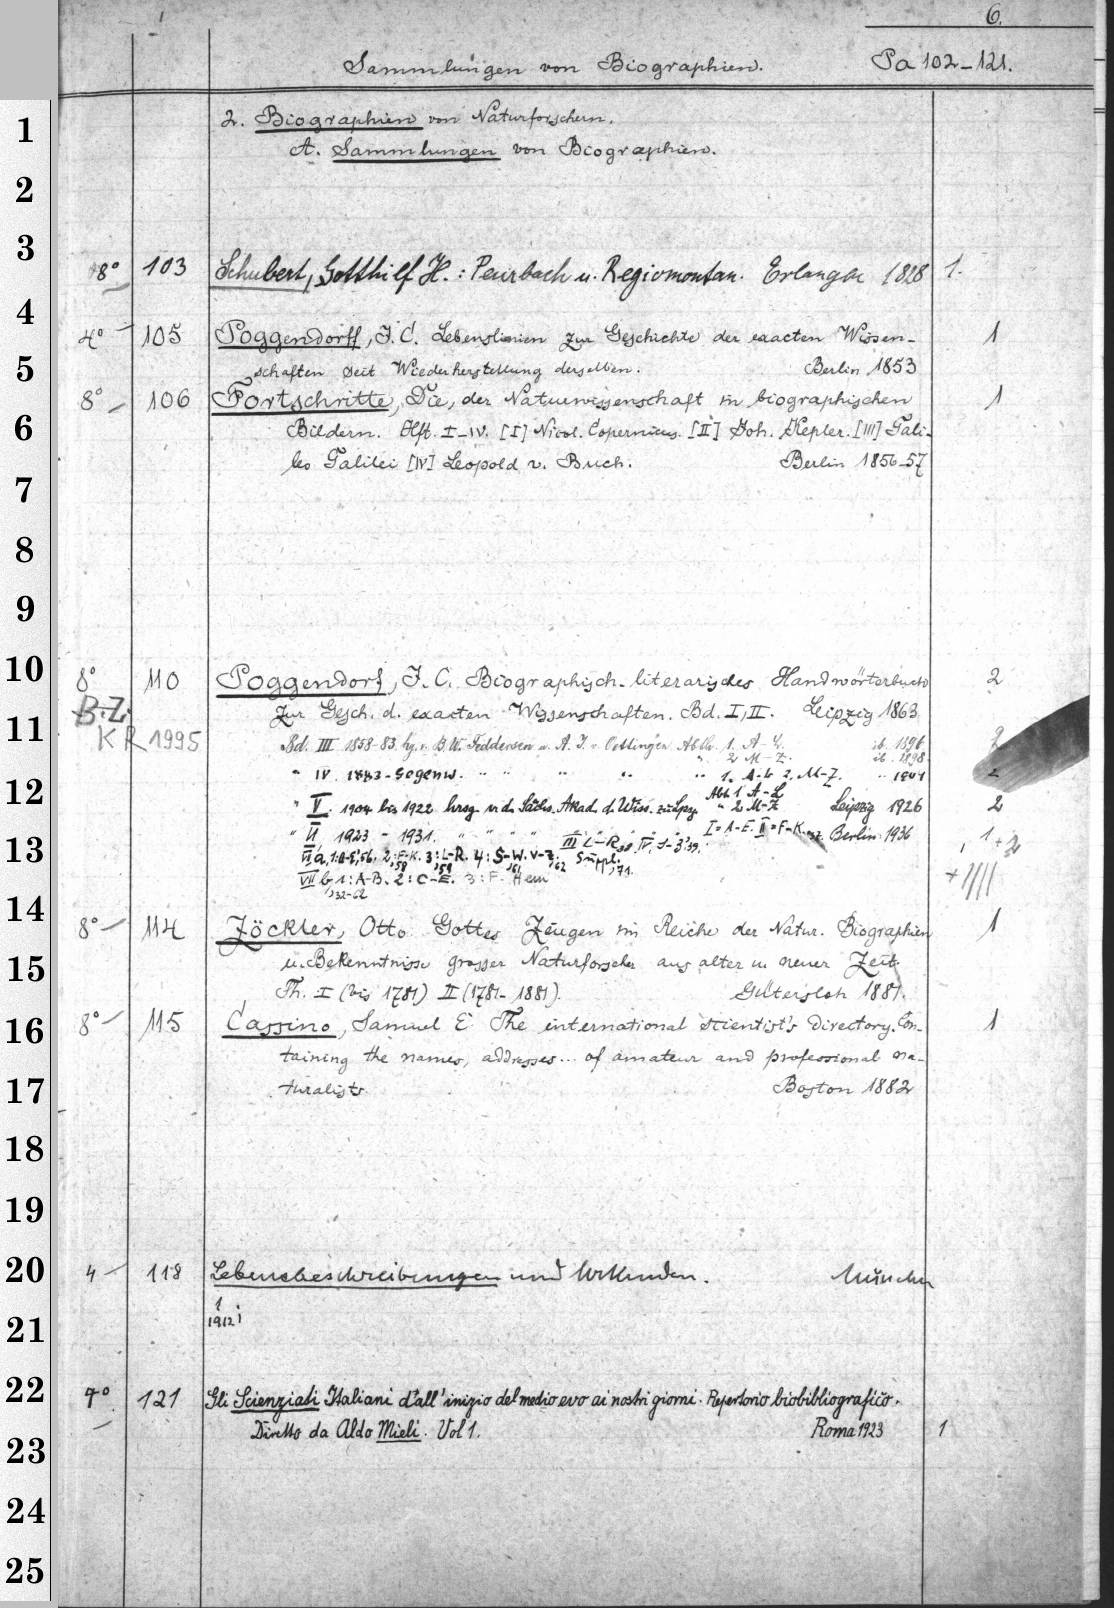 6.
Sammlungen von Biographien. Pa 102-121.
1
2. Biographien von Naturforschern.
A. Sammlungen von Biographien.
2
3
8° 103 Schubert, Gotthilf H.: Peurbach u. Regiomontan. Erlangen 1828 1.
4
4° 105 Poggendorff, J. C. Lebenslinien zur Geschichte der exacten Wissen-
5
schaften seit Wiederherstellung derselben. Berlin 1853 1
8° 106 Fortschritte, Die, der Naturwissenschaft in biographischen 1
6
Bildern. Hft. I-IV. [I] Nicol. Copernicus. [II] Joh. Kepler. [III] Gali-
leo Galilei [IV] Leopold v. Buch. Berlin 1856-57
7
8
9
10
8° 110 Poggendorf, J. C. Biographisch-literarisches Handwörterbuch 2
B.Z.
11
zur Gesch. d. exacten Wissenschaften. Bd. I, II. Leipzig 1863
KR 1995
Bd. III 1858-83. hg. v. B. W. Feddersen u. A. J. v. Oettingen. Abth. 1. A-L. ib. 1896 2
" 2 M-Z. ib. 1898
" IV. 1883-Gegenw. " " " " " 1. A-L 2. M-Z. " 1904 2
12
Abt. 1 A-L
" V. 1904 bis 1922 hrsg v. d. Sächs. Akad. d. Wiss. zu Lpzg. " 2 M-Z Leipzig 1926 2
" VI 1923 - 1931. " " " " I=A-E. II=F-K. Berlin 1936 1+2
13
III L-R, 38. IV. S-Z 39.
VIIa, 1: A-E, 56. 2: F-K. 3: L-R. 4: S-W. V-Z. Suppl.
,58 ,59 ,61 ,62 ,71.
VII b, 1: A-B. 2: C-E. 3: F-Hem +////
,32-62
14
8° 114 Zöckler, Otto Gottes Zeugen im Reiche der Natur. Biographien 1
15
u. Bekenntnisse grosser Naturforscher aus alter u. neuer Zeit.
Th. I (bis 1781) II (1781-1881). Gütersloh 1881.
16
8° 115 Cassino, Samuel E The international scientist's directory. Con- 1
taining the names, addresses... of amateur and professional na-
17
turalists. Boston 1882
18
19
20
4 118 Lebensbeschreibungen und Urkunden. München
1
1912
21
22
4° 121 Gli Scienziati Italiani dall' inizio del medio evo ai nostri giorni. Repertorio biobibliografico.
Diretto da Aldo Mieli. Vol 1. Roma 1923 1
23
24
25